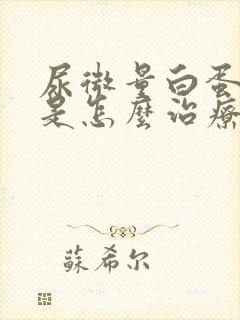 尿微量白蛋
是怎麼治療
蘇希尔